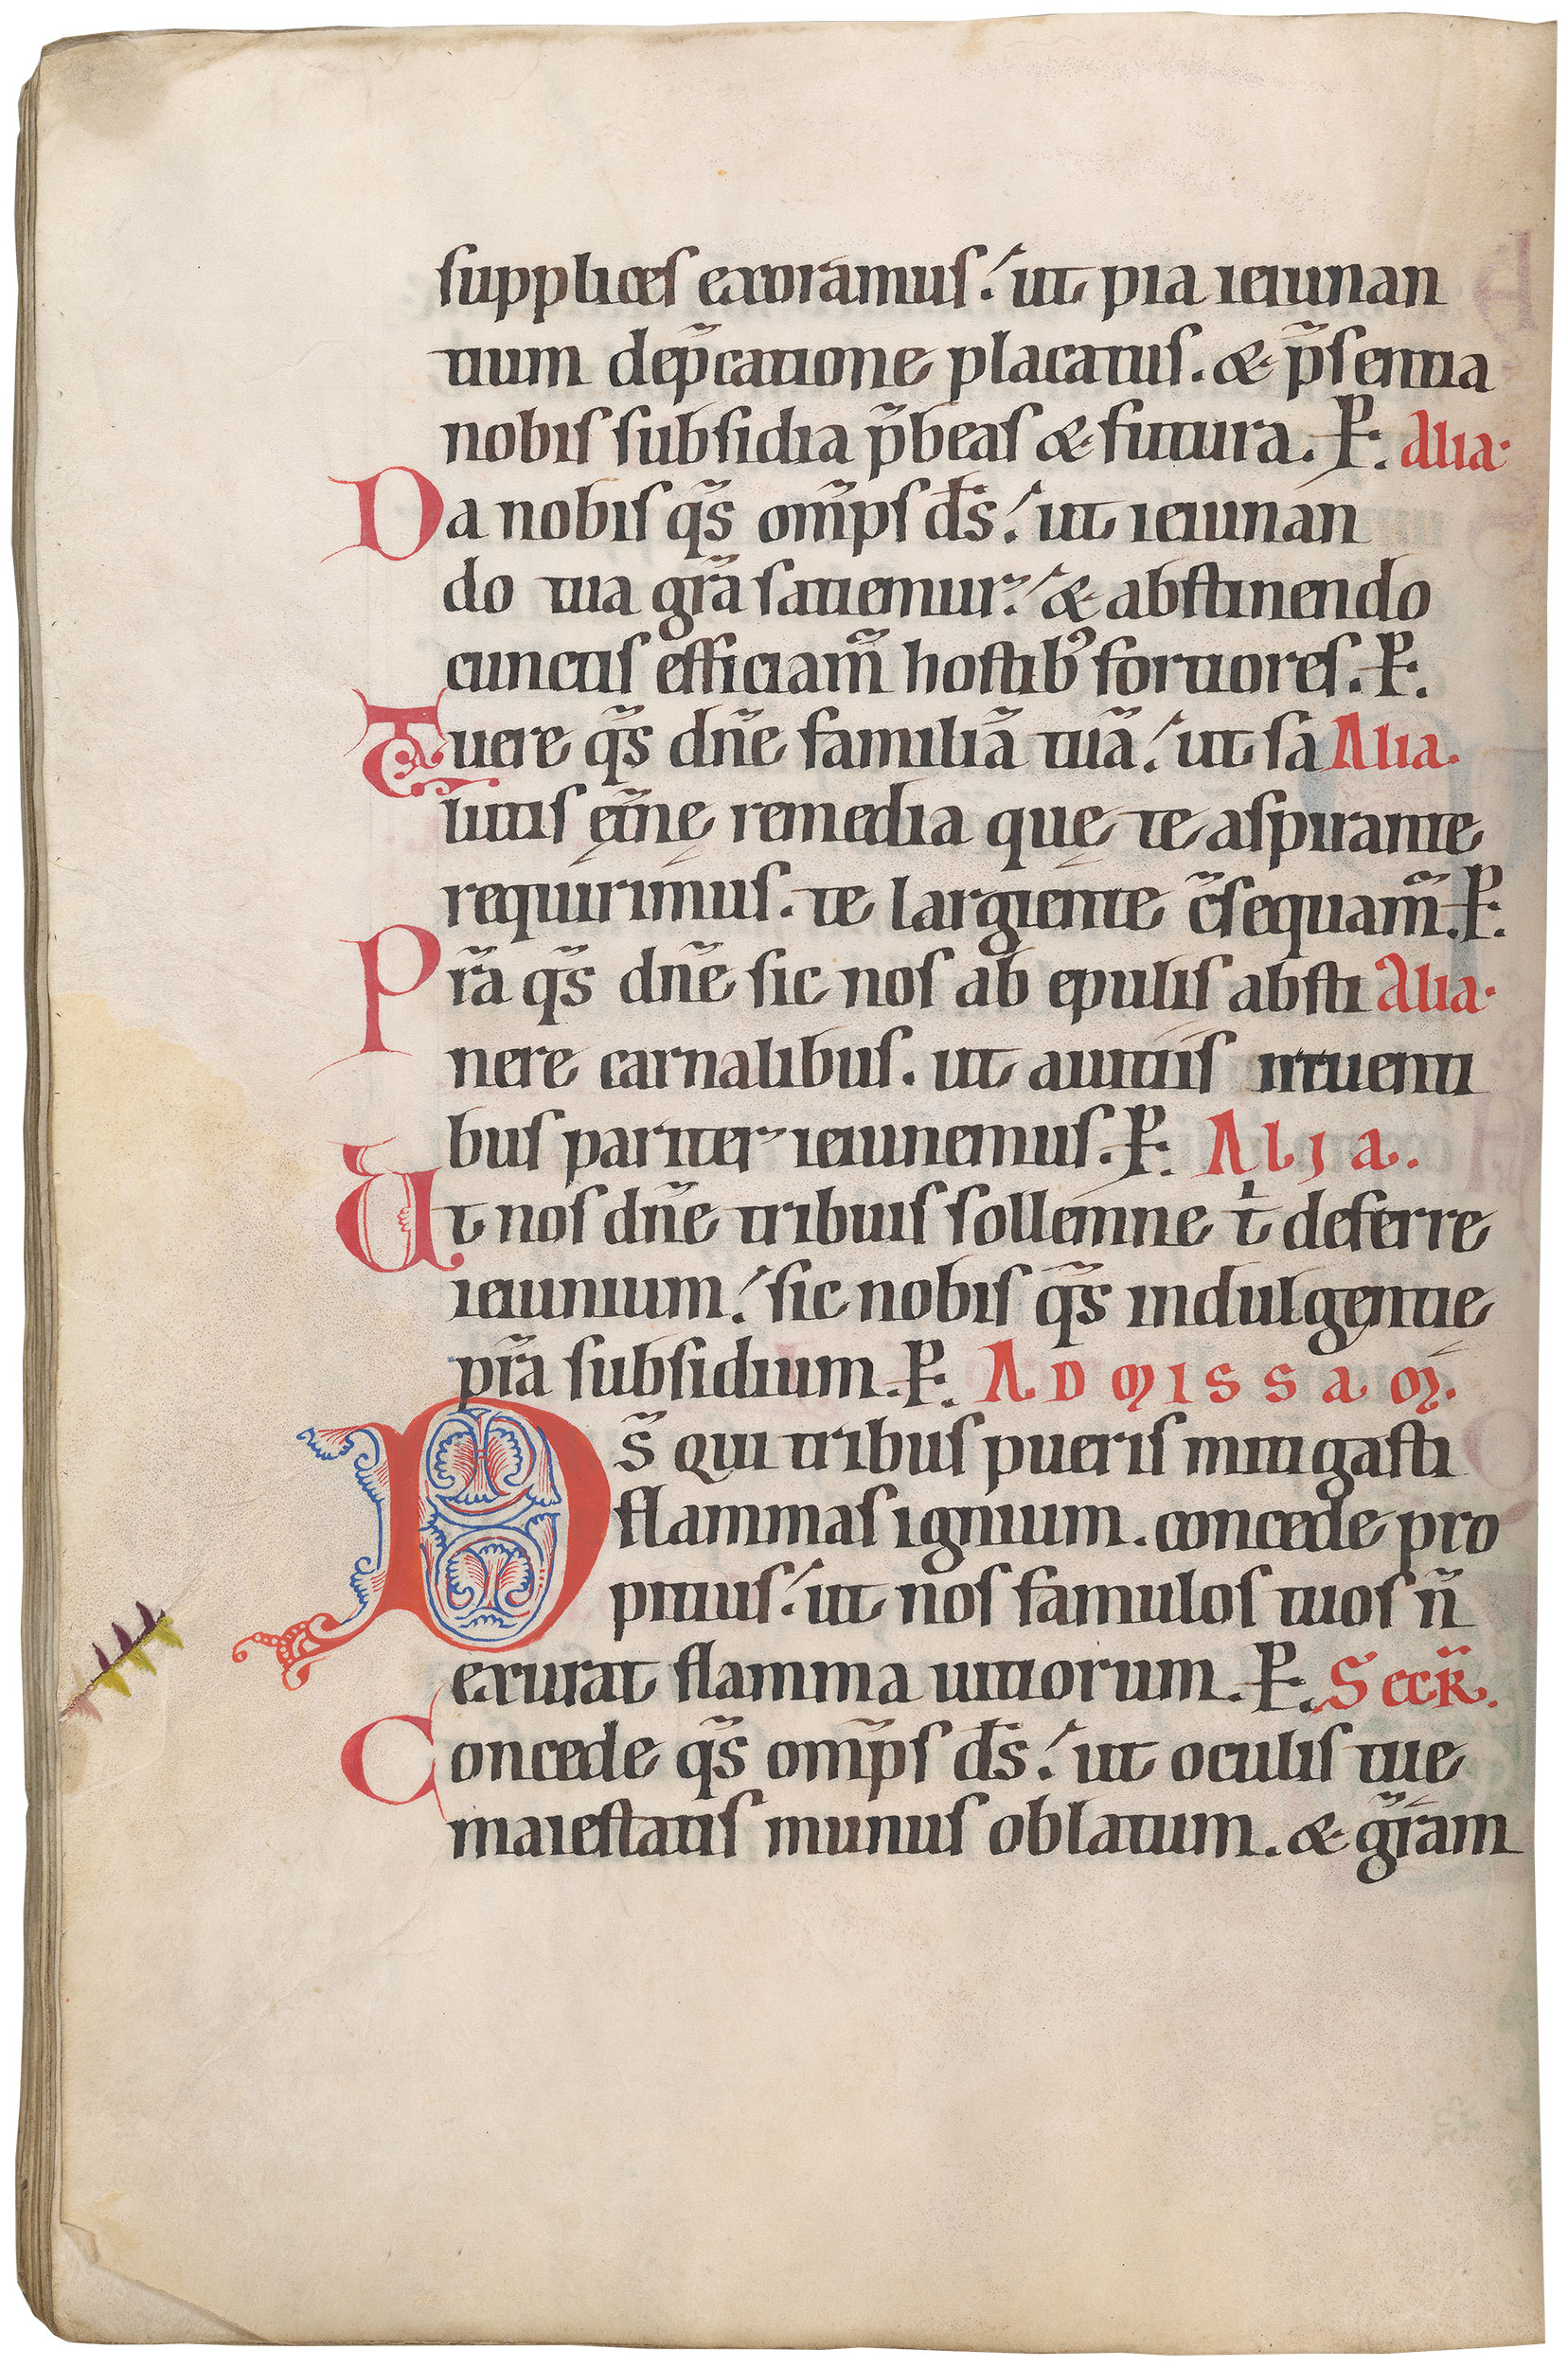 supplices exoramus. ut pia ieiunan
tium dep̃catione placatus. & p̃sentia
nobis subsidia p̃beas & futura. P. Alia.
Da nobis q̃s om̃ps d̃s. ut ieiunan
do tua gr̃a satiemur. & abstinendo
cunctis efficiam̃ hostib᾿ fortiores. P.
Tuere q̃s dñe familiã tuã. ut sa Alia.
lutis ęt̃nę remedia quę te aspirante
requirimus. te largiente c̃sequam̃. P.
Pr̃a q̃s dñe sic nos ab epulis absti Alia.
nere carnalibus. ut a uitiis irruenti
bus pariter ieiunemus. P. Alia.
Ut nos dñe tribuis sollemne t̃ deferre
ieiunium. sic nobis q̃s indulgentię
pr̃a subsidium. P. AD MISSAM.
Ds̃ qui tribus pueris mitigasti
flammas ignium. concede pro
pitius. ut nos famulos tuos ñ
exurat flamma uitiorum. P. Secr̃.
Concede q̃s om̃ps d̃s. ut oculis tuę
maiestatis munus oblatum. & gr̃am